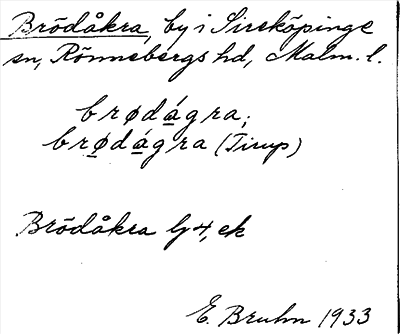 Brödåkra, by i Sireköpinge
sn, Rönnebergs hd, Malm. l.
brødágra;
brødágra (Tirup)
Brödåkra Ig 4, ek
E. Bruhn 1933